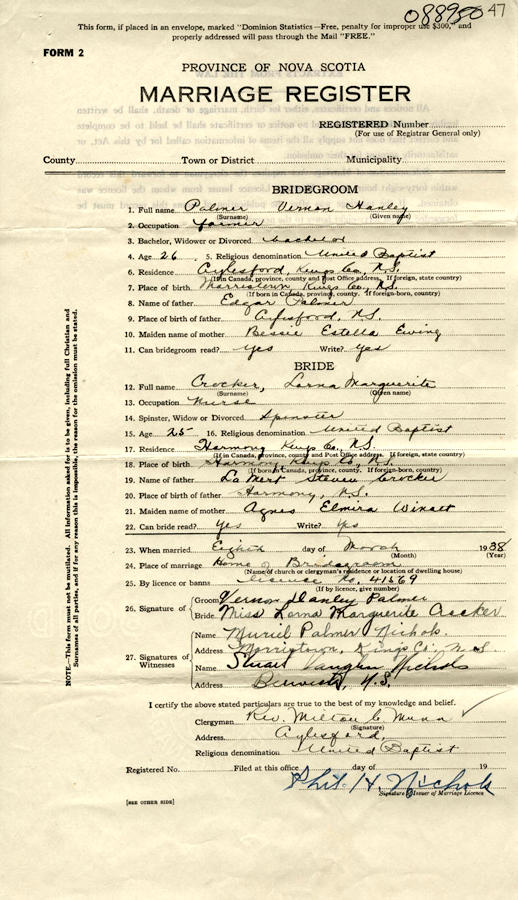 088950 47
This form, if placed in an envelope, marked "Dominion Statistics—Free, penalty for improper use $300," and
properly addressed will pass through the Mail "FREE."
FORM 2
PROVINCE OF NOVA SCOTIA
MARRIAGE REGISTER
REGISTERED Number
(For use of Registrar General only)
County Town or District Municipality
BRIDEGROOM
1. Full name Palmer Vernon Hanley
(Surname) (Given name)
2. Occupation farmer
3. Bachelor, Widower or Divorced bachelor
4. Age 26 5. Religious denomination United Baptist
6. Residence Aylesford, Kings Co., N.S.
(If in Canada, province, county and Post Office address. If foreign, state country)
7. Place of birth Morristown, Kings Co., N.S.
(If born in Canada, province, county. If foreign-born, country)
8. Name of father Edgar Palmer
9. Place of birth of father Aylesford, N.S.
10. Maiden name of mother Bessie Estella Ewing
11. Can bridegroom read? yes Write? yes
BRIDE
12. Full name Crocker, Lorna Marguerite
(Surname) (Given name)
13. Occupation Nurse
14. Spinster, Widow or Divorced Spinster
15. Age 25 16. Religious denomination United Baptist
17. Residence Harmony Kings Co., N.S.
(If in Canada, province, county and Post Office address. If foreign, state country)
18. Place of birth Harmony, Kings Co., N.S.
(If born in Canada, province, county. If foreign-born, country)
19. Name of father LaMert Steven Crocker
20. Place of birth of father Harmony, N.S.
21. Maiden name of mother Agnes Elmira
22. Can bride read? Yes Write? Yes
23. When married Eighth day of March 1938
(Month) (Year)
24. Place of marriage Home of Bridegroom
(Name of church or clergyman's residence or location of dwelling house)
25. By licence or banns licence No. 41569
(If by licence, give number)
26. Signature of Groom Vernon Hanley Palmer
Bride Miss Lorna Marguerite Crocker
27. Signatures of Witnesses
Name Muriel Palmer Nichols
Address Morristown, Kings Co., N.S.
Name Stuart Vaughn Nichols
Address Berwick, N.S.
I certify the above stated particulars are true to the best of my knowledge and belief.
Clergyman Rev. Milton C Munn
(Signature)
Address Aylesford,
Religious denomination United Baptist
Registered No. Filed at this office day of 19
Phil. H. Nichols
Signature Issuer of Marriage Licence
[SEE OTHER SIDE]
NOTE.—This form must not be mutilated. All information asked for is to be given, including full Christian and
Surnames of all parties, and if for any reason this is impossible, the reason for the omission must be stated.